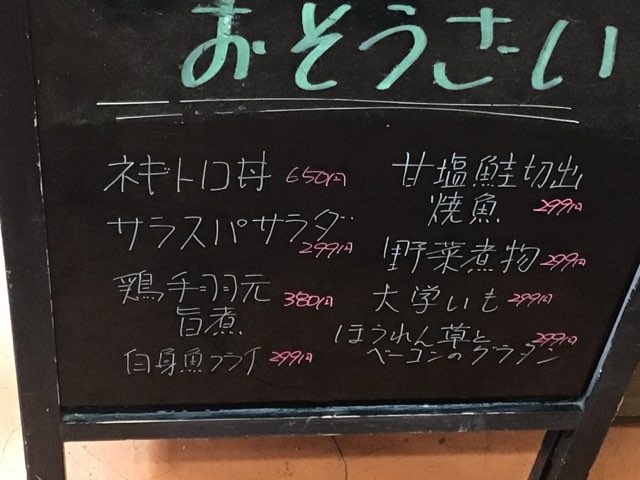 おそうざい
ネギトロ丼 650円
サラスパサラダ
299円
鶏手羽元
旨煮 380円
白身魚フライ 299円
甘塩鮭切出
焼魚 299円
野菜煮物 299円
大学いも 299円
ほうれん草と
ベーコンのグラタン 299円